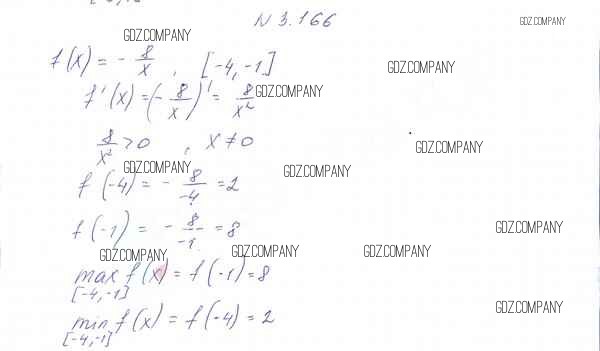 N 3.166
GDZ.COMPANY
GDZ.COMPANY
f(x) = - 8/x , [-4, -1]
GDZ.COMPANY
f'(x) = (- 8/x)' = 8/x²
GDZ.COMPANY
8/x² > 0 , x ≠ 0
GDZ.COMPANY
GDZ.COMPANY
GDZ.COMPANY
f(-4) = - 8/-4 = 2
f(-1) = - 8/-1 = 8
GDZ.COMPANY
GDZ.COMPANY
GDZ.COMPANY
GDZ.COMPANY
max f(x) = f(-1) = 8
[-4,-1]
GDZ.COMPANY
min f(x) = f(-4) = 2
[-4,-1]